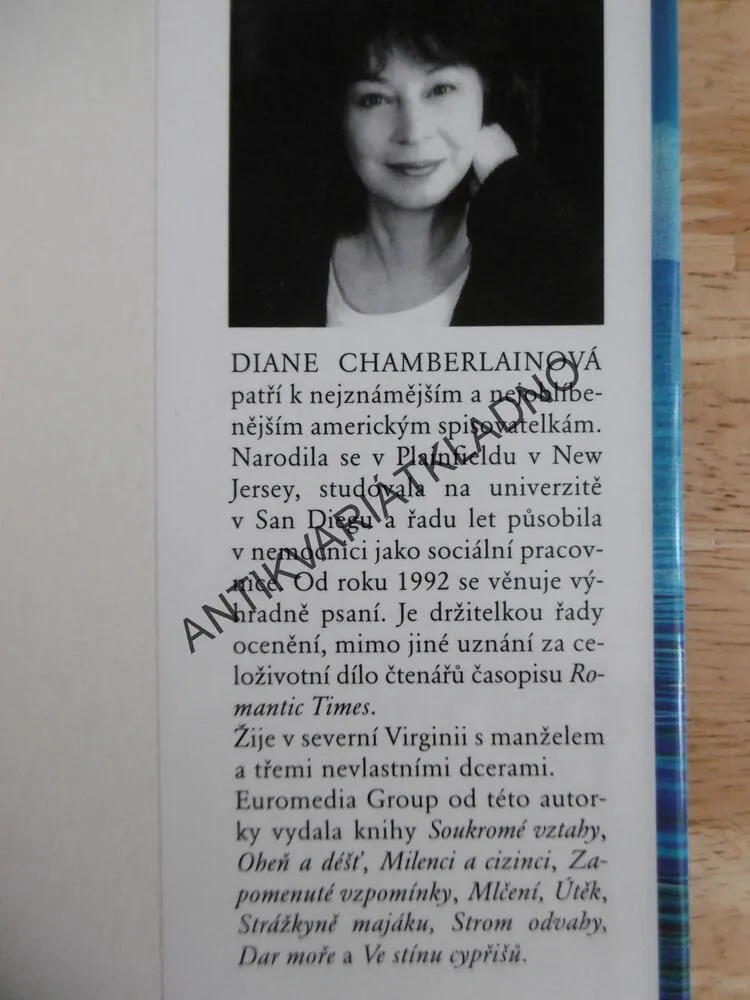 DIANE CHAMBERLAINOVÁ
patří k nejznámějším a nejoblíbe-
nějším americkým spisovatelkám.
Narodila se v Plainfieldu v New
Jersey, studovala na univerzitě
v San Diegu a řadu let působila
v nemocnici jako sociální pracov-
nice. Od roku 1992 se věnuje vý-
hradně psaní. Je držitelkou řady
ocenění, mimo jiné uznání za ce-
loživotní dílo čtenářů časopisu Ro-
mantic Times.
Žije v severní Virginii s manželem
a třemi nevlastními dcerami.
Euromedia Group od této autor-
ky vydala knihy Soukromé vztahy,
Oheň a déšť, Milenci a cizinci, Za-
pomenuté vzpomínky, Mlčení, Útěk,
Strážkyně majáku, Strom odvahy,
Dar moře a Ve stínu cypřišů.
ANTIKVARIÁTKLADNO